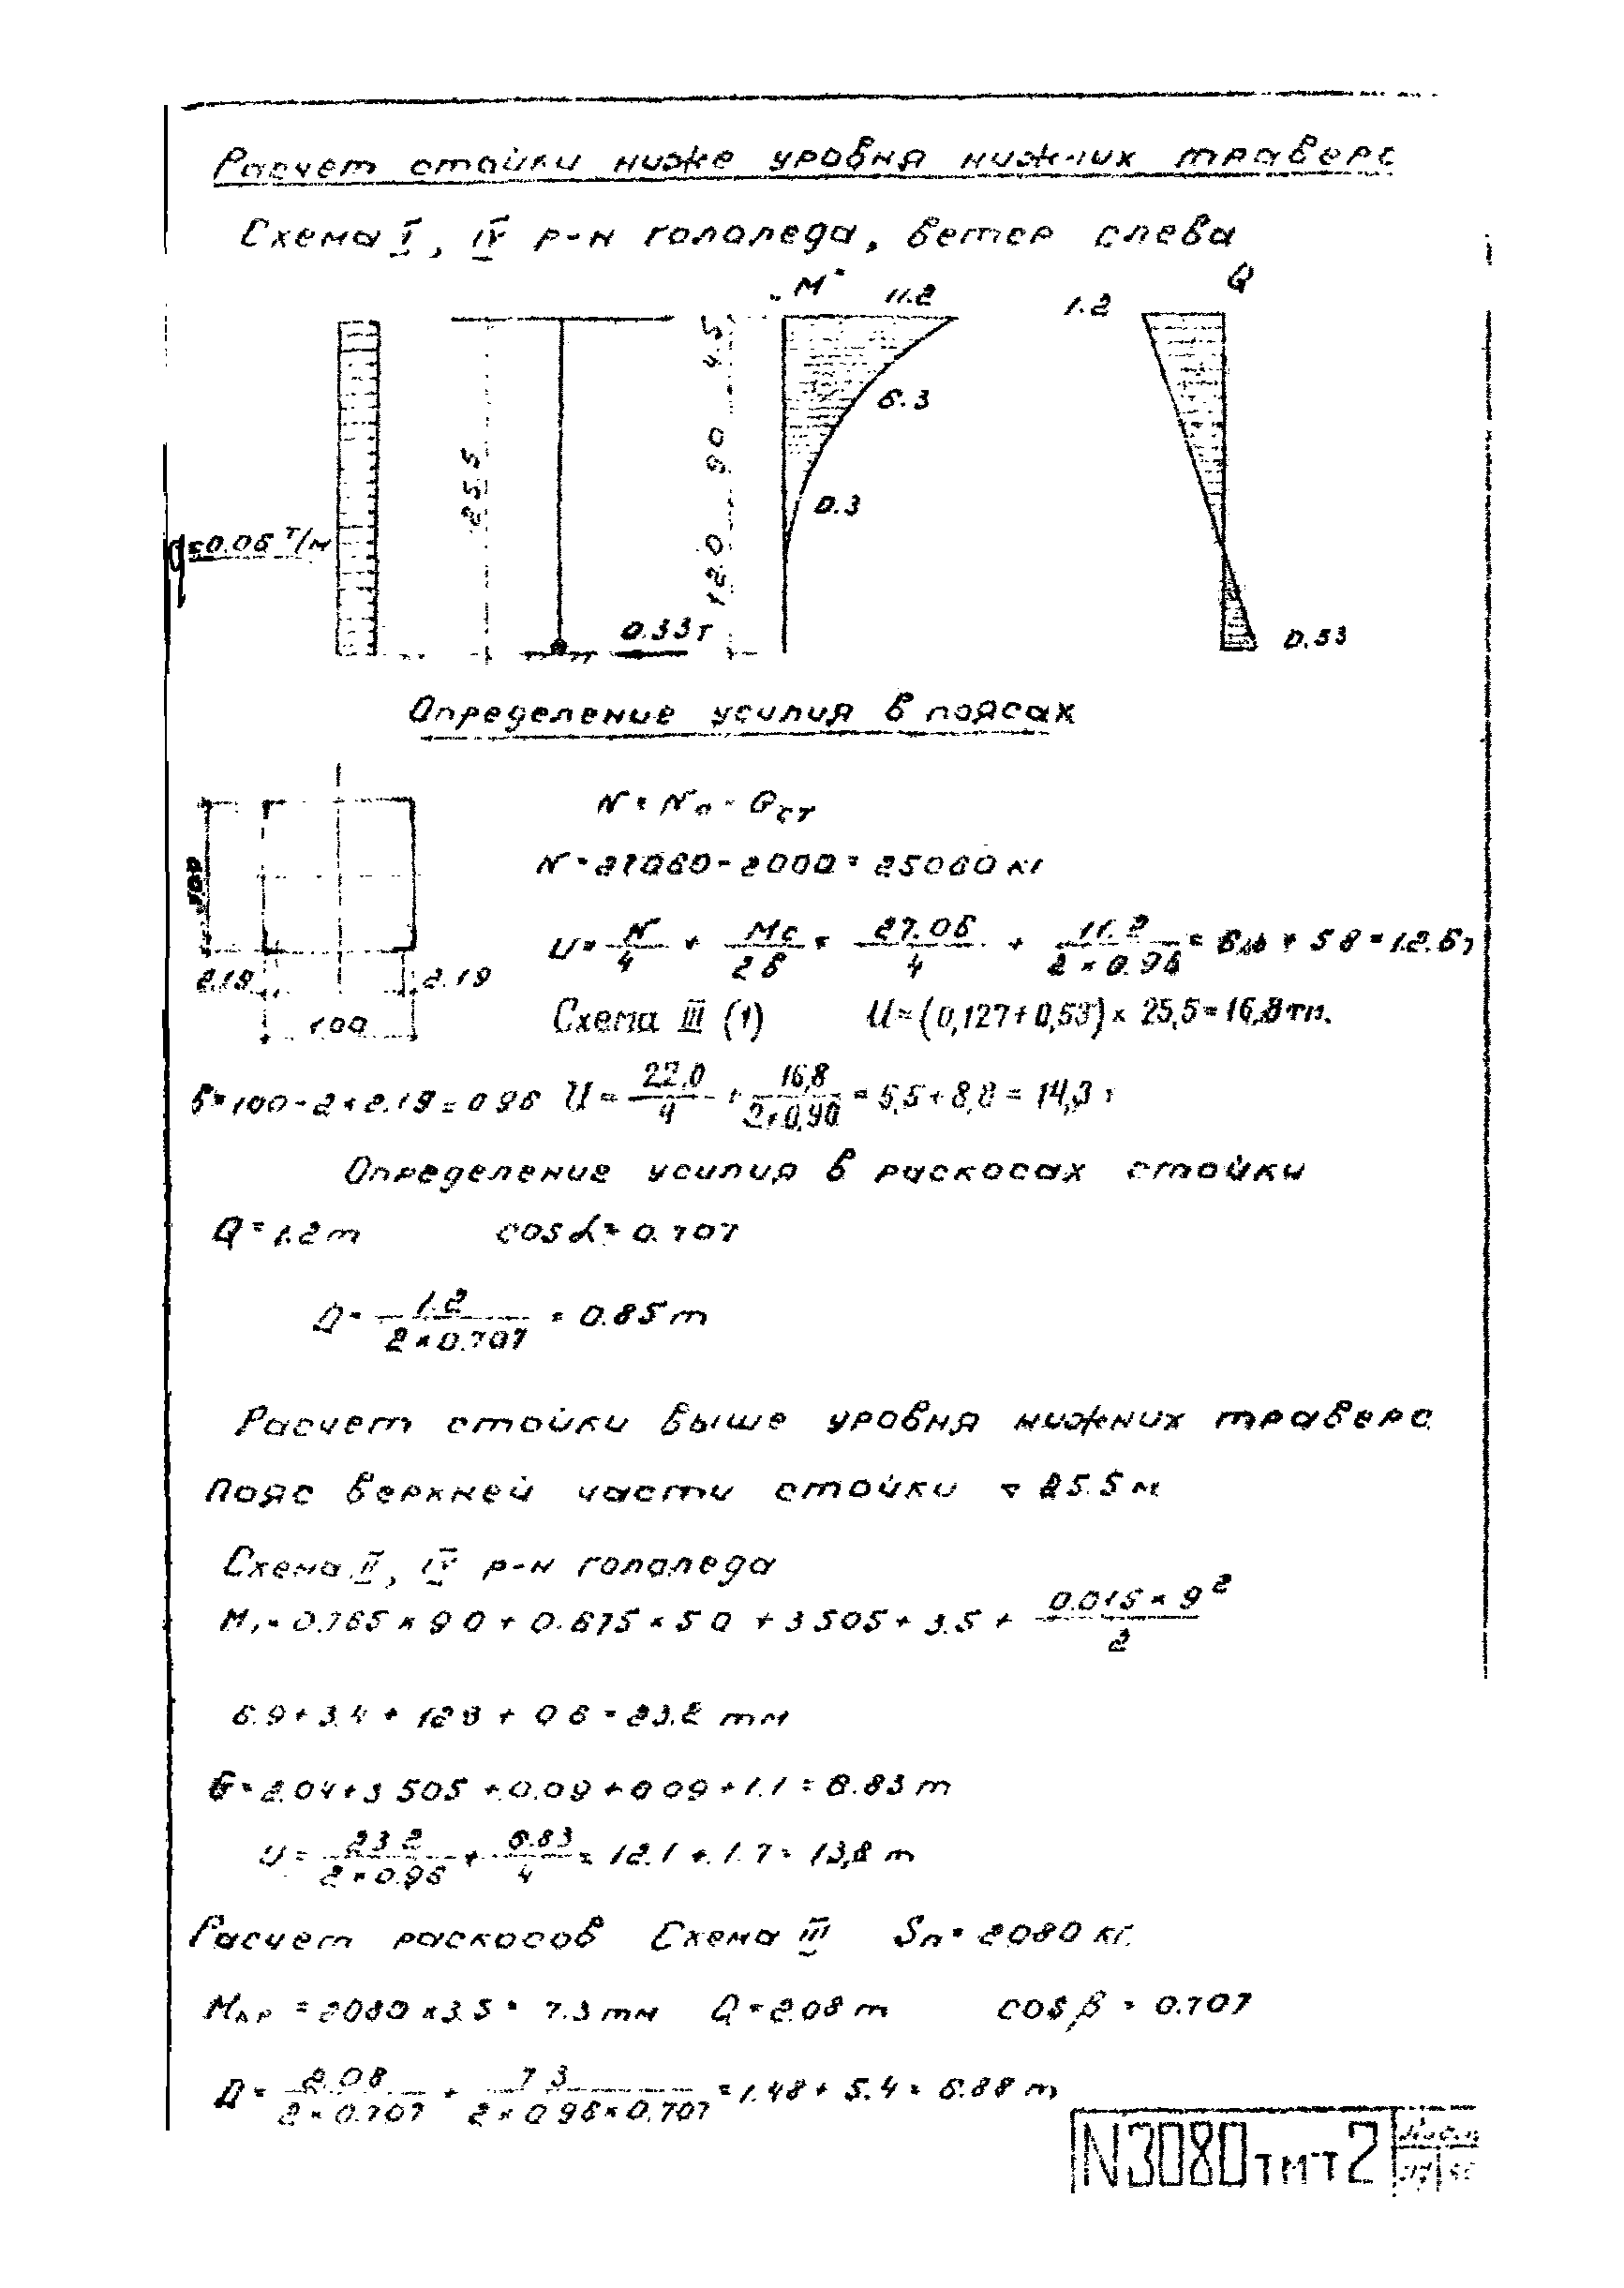 Расчет стойки ниже уровня нижних траверс
Схема I, IV р-н гололеда, ветер слева
"М"
11.2
6.3
0.3
Q
1.2
0.53
4.5
9.0
12.0
25.5
q=0.06 т/м
0.33т
Определение усилия в поясах
N = No - Gст
N = 27060 - 2000 = 25060 кг
2.19
2.19
100
U = N/4 + Mc/2б = 27.06/4 + 11.2/2×0.96 = 6,8 + 5.8 = 12.6т
Схема III (1) U = (0,127 + 0,53) × 25,5 = 16,8 тм.
б = 100 - 2 × 2.19 = 0.96 U = 22,0/4 + 16,8/2×0,96 = 5,5 + 8,8 = 14,3 т
Определение усилия в раскосах стойки
Q = 1.2 т cos α = 0.707
D = 1.2/2×0.707 = 0.85 т
Расчет стойки выше уровня нижних траверс
Пояс верхней части стойки 25.5 м
Схема II, IV р-н гололеда
M₁ = 0.765 × 9.0 + 0.675 × 5.0 + 3.505 × 3.5 + 0.015 × 9²/2
6.9 + 3.4 + 12.3 + 0.6 = 23.2 тм
G = 2.04 + 3.505 + 0.09 + 0.09 + 1.1 = 6.83 т
U = 23.2/2×0.96 + 6.83/4 = 12.1 + 1.7 = 13,8 т
Расчет раскосов Схема III Sп = 2080 кг.
Мкр = 2080 × 3.5 = 7.3 тм Q = 2.08 т cos β = 0.707
D = 2.08/2×0.707 + 7.3/2×0.96×0.707 = 1.48 + 5.4 = 6.88 т
N3080тм-т2
Лист